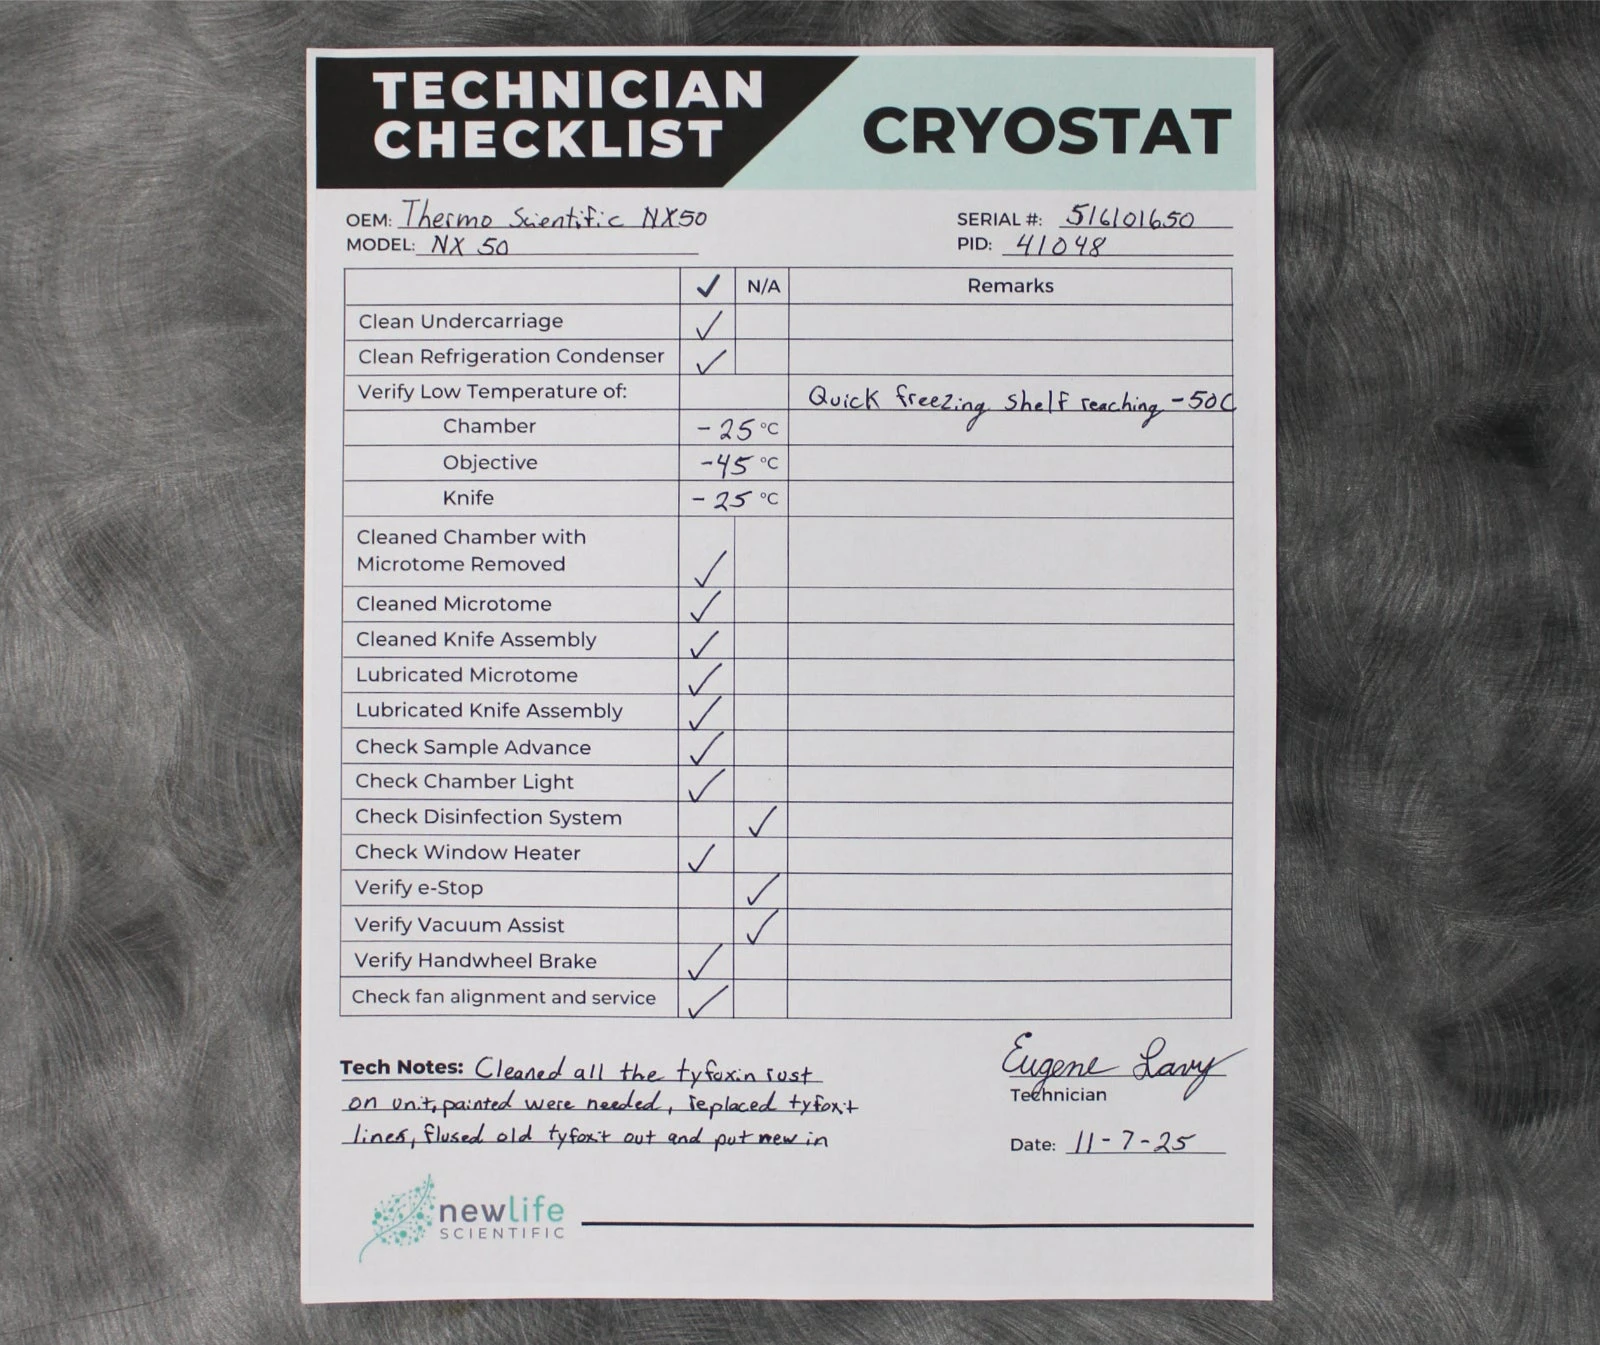 TECHNICIAN
CHECKLIST
CRYOSTAT
OEM: Thermo Scientific NX50
SERIAL #: 516101650
MODEL: NX 50
PID: 41048
✓ N/A Remarks
Clean Undercarriage ✓
Clean Refrigeration Condenser ✓
Verify Low Temperature of: Quick freezing shelf reaching -50C
Chamber -25 °C
Objective -45 °C
Knife -25 °C
Cleaned Chamber with
Microtome Removed ✓
Cleaned Microtome ✓
Cleaned Knife Assembly ✓
Lubricated Microtome ✓
Lubricated Knife Assembly ✓
Check Sample Advance ✓
Check Chamber Light ✓
Check Disinfection System ✓
Check Window Heater ✓
Verify e-Stop ✓
Verify Vacuum Assist ✓
Verify Handwheel Brake ✓
Check fan alignment and service ✓
Tech Notes: Cleaned all the tyfoxin rust
on unit, painted were needed, replaced tyfoxit
lines, flused old tyfoxit out and put new in
Eugene Lavy
Technician
Date: 11-7-25
newlife
SCIENTIFIC